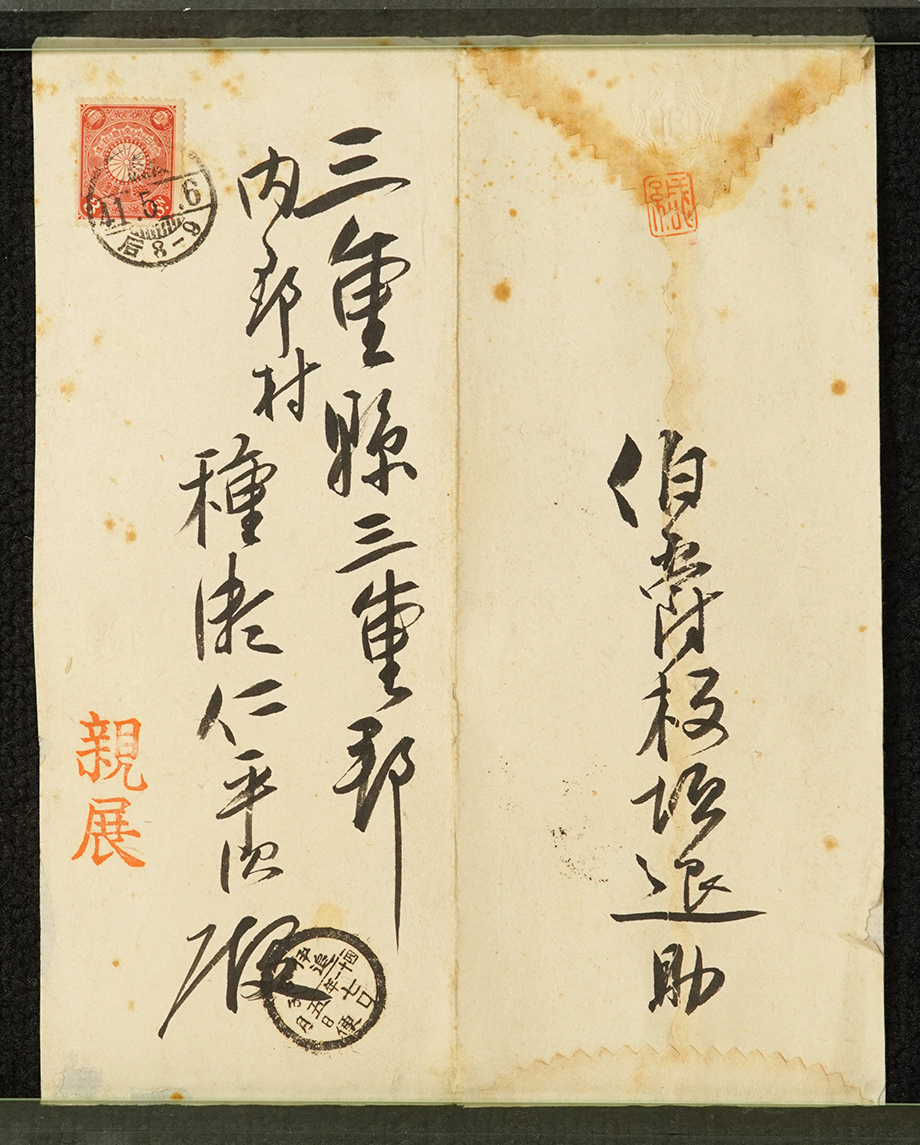 伯爵板垣退助
三重縣三重郡
内部村
種憲仁平治殿
親展
41.5.6
后8-9